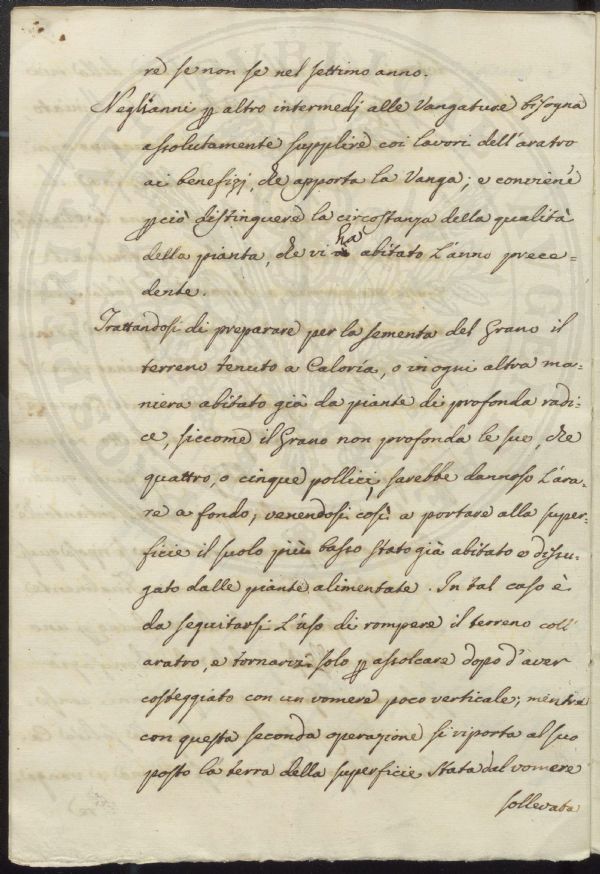 re se non se nel settimo anno.
Negli anni p altro intermedj alle Vangature bisogna
assolutamente supplire coi lavori dell'aratro
ai benefizj, che apporta la Vanga; e conviene
pciò distinguere la circostanza della qualità
della pianta, che vi ha abitato l'anno prece=
dente.
Trattandosi di preparare per la sementa del Grano il
terreno tenuto a Caloría, o in ogni altra ma=
niera abitato già da piante di profonda radi=
ce, siccome il Grano non profonda le sue, che
quattro, o cinque pollici, sarebbe dannoso l'ara=
re a fondo, venendosi così a portare alla super=
ficie il suolo più basso stato già abitato e dissu=
gato dalle piante alimentate. In tal caso è
da seguitarsi l'uso di rompere il terreno coll'
aratro, e tornarvi solo p assolcare dopo d'aver
costeggiato con un vomere poco verticale; mentre
con questa seconda operazione si riporta al suo
posto la terra della superficie stata dal vomere
sollevata